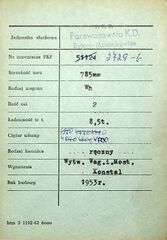 Jednostka służbowa
Parowozownia K.D.
Nr inwentarza PKP 51124 2728-6
Szerokość toru 785mm
Rodzaj wagonu Wh
Ilość osi 2
Ładowność w t. 8,5t.
Ciężar własny
Rodzaj hamulca ręczny
Wytwórnia Wytw. Wag. i Most. Konstal
Rok budowy 1953r.